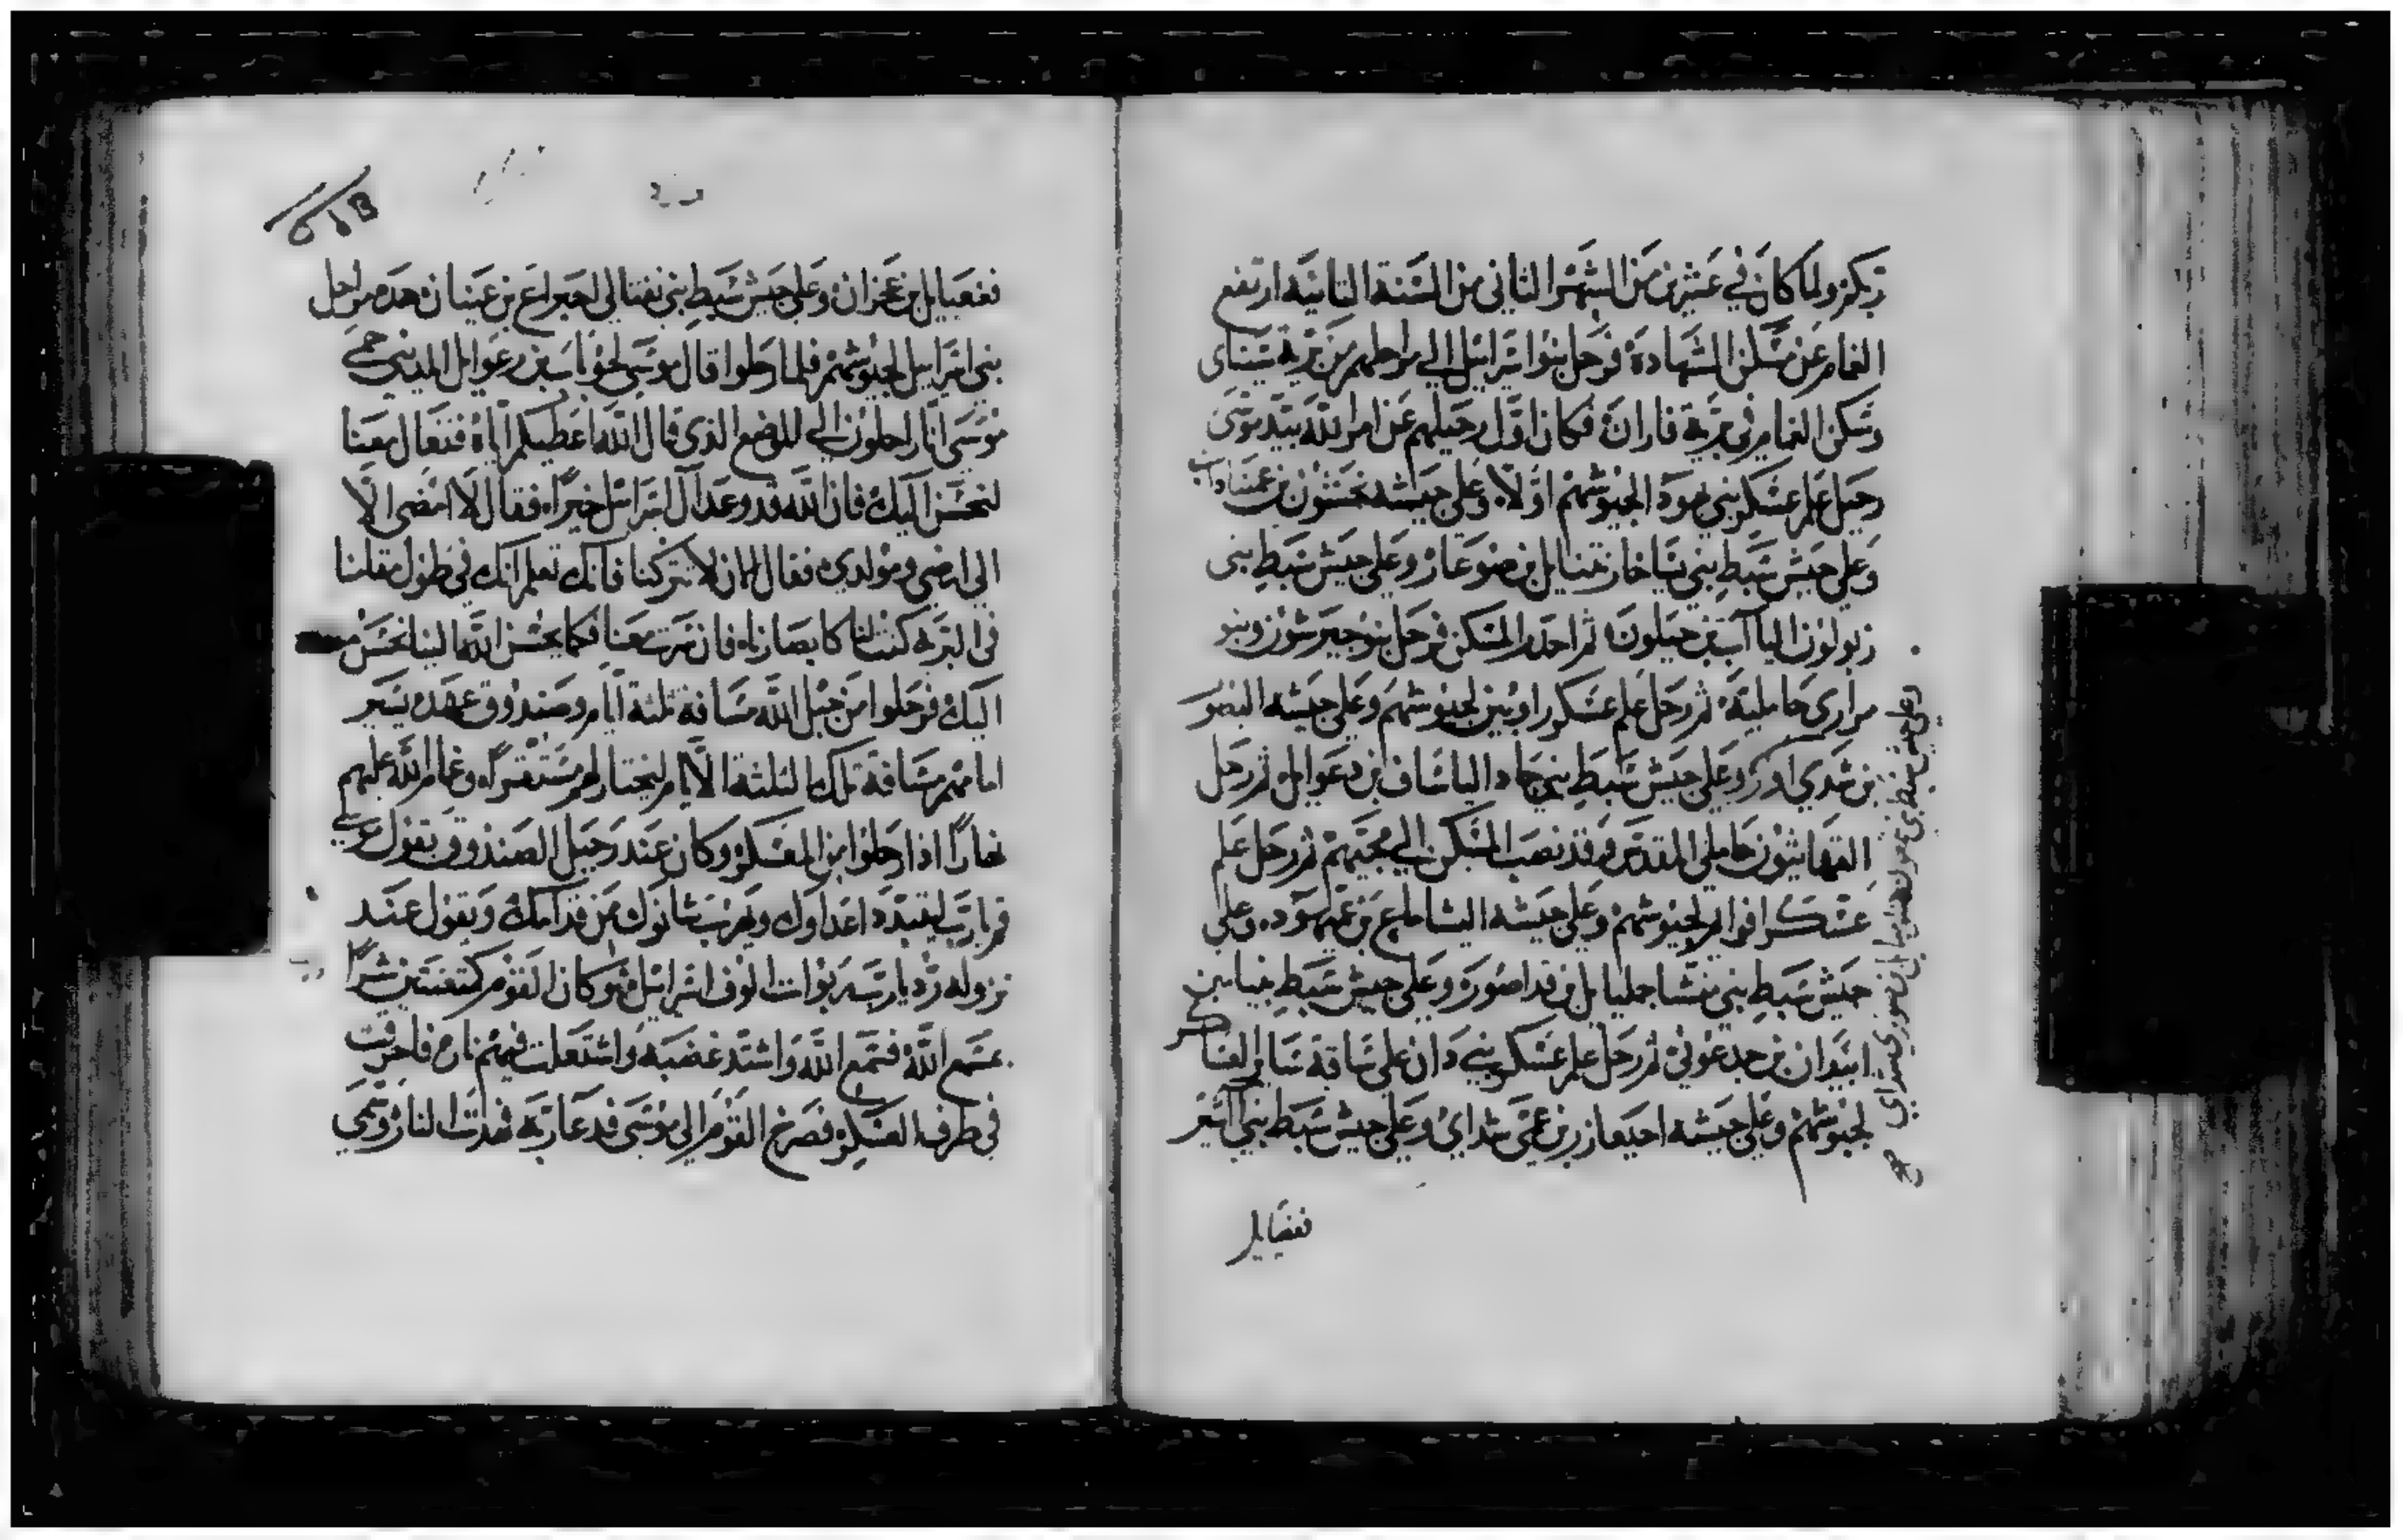 ربكم ولما كان في عشرين من الشهر الثاني من السنة الثانية ارتفع
الغمام عن مسكن الشهادة فرحل بنوا سراييل الي مراحلهم من برية سيناى
وسكن الغمام في برية فاران فكان اول رحيلهم عن امر الله بيد موسى
رحيل علم عسكر بني يهودا لجيوشهم اولا وعلي جيشه نحشون بن عميناداب
وعلي جيش سبط بني يساخار نتنايل بن صوعار وعلي جيش سبط بني
زبولون الياآب بن حيلون ثم احدر المسكن فرحل بنو جيرشون وبنو
مراري حاملية ثم رحل علم عسكر راوبين لجيوشهم وعلي جيشه اليصور
بن شدي اور وعلي جيش سبط بني جاد الياساف ابن دعوايل ثم رحل
القهاثيون حاملي المقدس وقد نصب المسكن الي مجيهم ثم رحل علم
عسكر افرام لجيوشهم وعلي جيشه اليشاماع بن عميهود وعلي
جيش سبط بني منسا جمليايل بن فداصور وعلي جيش سبط بنيامين
ابيدان بن جدعوني ثم رحل علم عسكر بني دان علي ساقة ساير العساكر
لجيوشهم وعلي جيشه احيعازر بن عمي شداي وعلي جيش سبط بني اشير
فغعيايل
فغعيايل بن عخران وعلي جيش سبط بني نفتالي احيراع بن عينان هذه مراحل
بني اسراييل لجيوشهم فلما رحلوا قال موسي لحوباب بن رعوايل المديني حمي
موسي انا راحلون الي الموضع الذي قال الله اعطيكم اياه فتعال معنا
لنحسن اليك فان الله قد وعد آل اسراييل خيرا فقال لا امضي الا
الي ارضي ومولدي فقال له لان لا تتركنا فانك تعلم انك في طول مقامنا
في البرية كنت لنا كابصارنا فان سرت معنا فكما يحسن الله الينا نحسن
اليك فرحلوا من جبل الله مسافة ثلثة ايام وصندوق عهده يسير
امامهم مسافة تلك الثلثة الايام ليختار لهم مستقرا وغمام الله عليهم
نهارا اذا رحلوا من المعسكر وكان عند رحيل الصندوق يقول موسي
قم يارب ليتبدد اعداوك ويهرب شانوك من قدامك ويقول عند
نزوله رد يارب ربوات الوف اسراييل ثم كان القوم كمتعنتين شرا
عسمع الله فسمع الله واشتد غضبه واشتعلت فيهم نار فاحرقت
في طرف العسكر فصرخ القوم الي موسى فدعا ربه فهدت النار وسمي